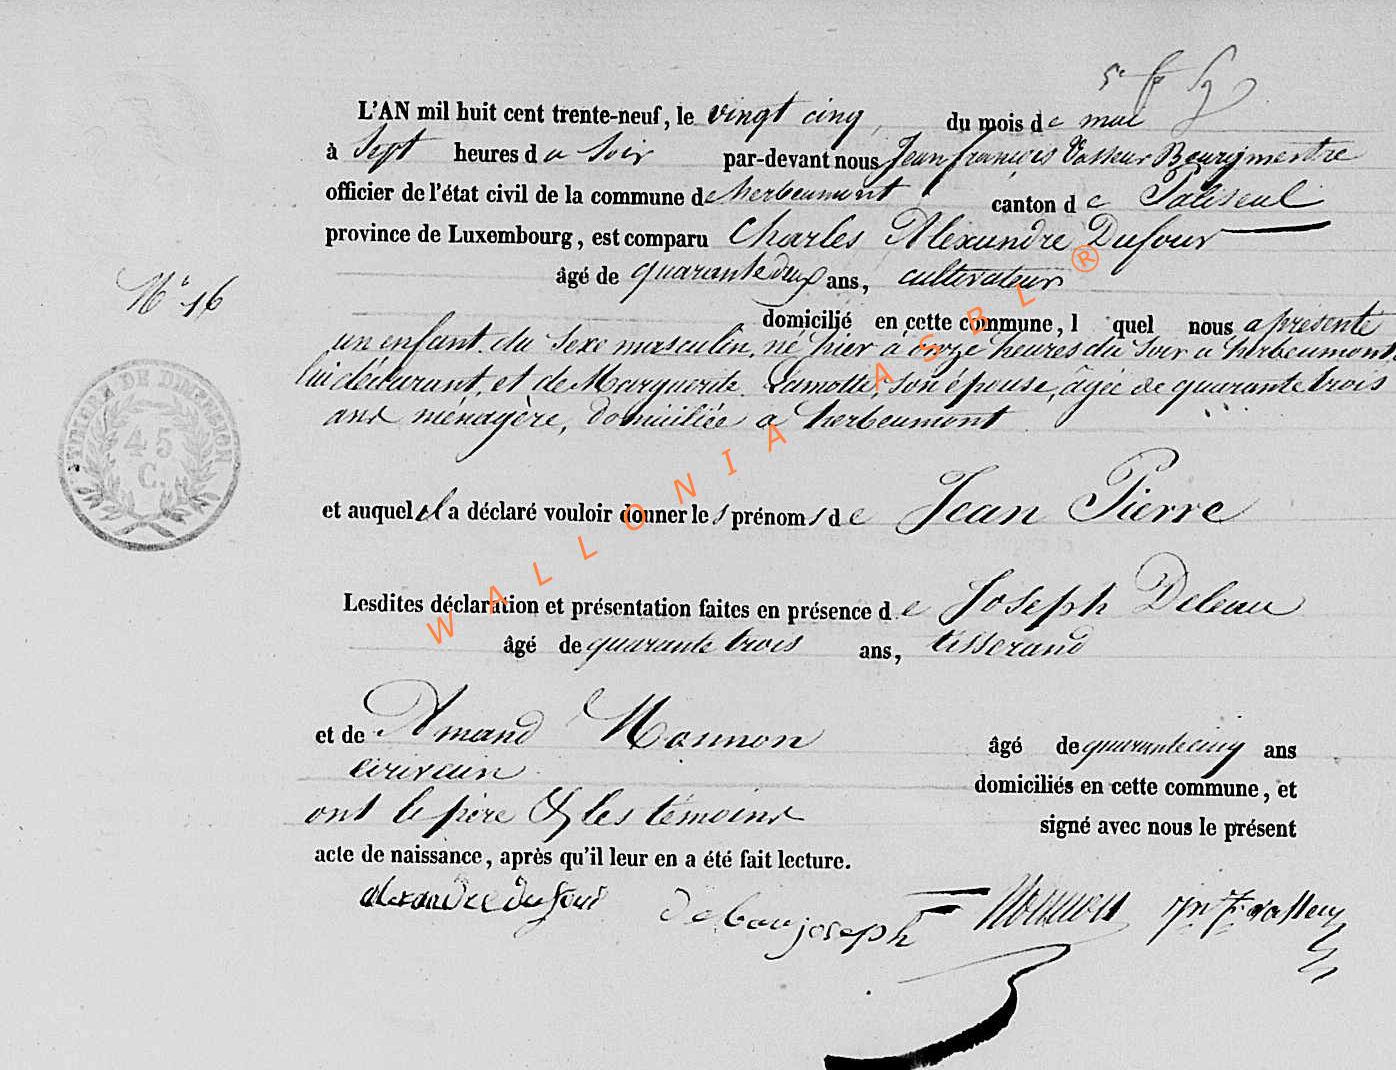 L'AN mil huit cent trente-neuf, le vingt cinq, du mois de mai
à Sept heures du Soir par-devant nous Jean françois Vasseur Bourgmestre
officier de l'état civil de la commune de herbeumont canton de Paliseul
province de Luxembourg, est comparu Charles Alexandre Dufour
âgé de quarante deux ans, cultivateur
N° 16
domicilié en cette commune, l quel nous a présenté
un enfant du sexe masculin, né hier à onze heures du soir a herbeumont
lui déclarant, et de Marguerite Lamotte, son épouse, âgée de quarante trois
ans ménagère, domiciliée a herbeumont
TIMBRE DE DIMENSION
45
C.
et auquel il a déclaré vouloir donner les prénoms de Jean Pierre
Lesdites déclaration et présentation faites en présence de Joseph Deleau
âgé de quarante trois ans, tisserand
et de Amand Mounon âgé de quarante cinq ans
écrivain
domiciliés en cette commune, et
ont le père & les témoins signé avec nous le présent
acte de naissance, après qu'il leur en a été fait lecture.
alexandre dufour deleau joseph Mounon Jn F Vasseur
WALLONIA ASBL ®